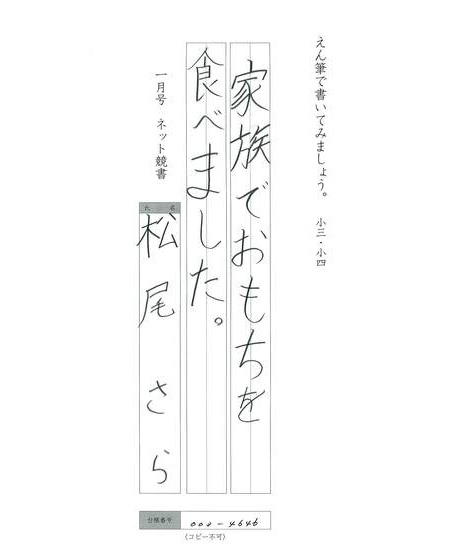 えん筆で書いてみましょう。 小三・小四
家族でおもちを
食べました。
一月号 ネット競書
氏 名
松尾さら
合格番号 002-4646
(コピー不可)